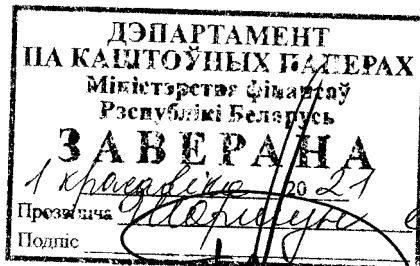 ДЭПАРТАМЕНТ
ПА КАШТОЎНЫХ ПАПЕРАХ
Міністэрства фінансаў
Рэспублікі Беларусь
ЗАВЕРАНА
1 красавіка 2021
Прозвішча
Подпіс